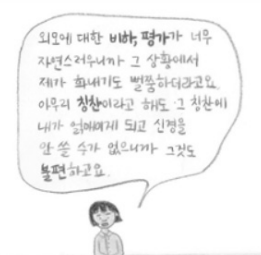 외모에 대한 비하, 평가가 너무
자연스러우니까 그 상황에서
제가 화내기도 뻘쭘하더라고요.
아무리 칭찬이라고 해도 그 칭찬에
내가 얽매이게 되고 신경을
안 쓸 수가 없으니까 그것도
불편하고요.